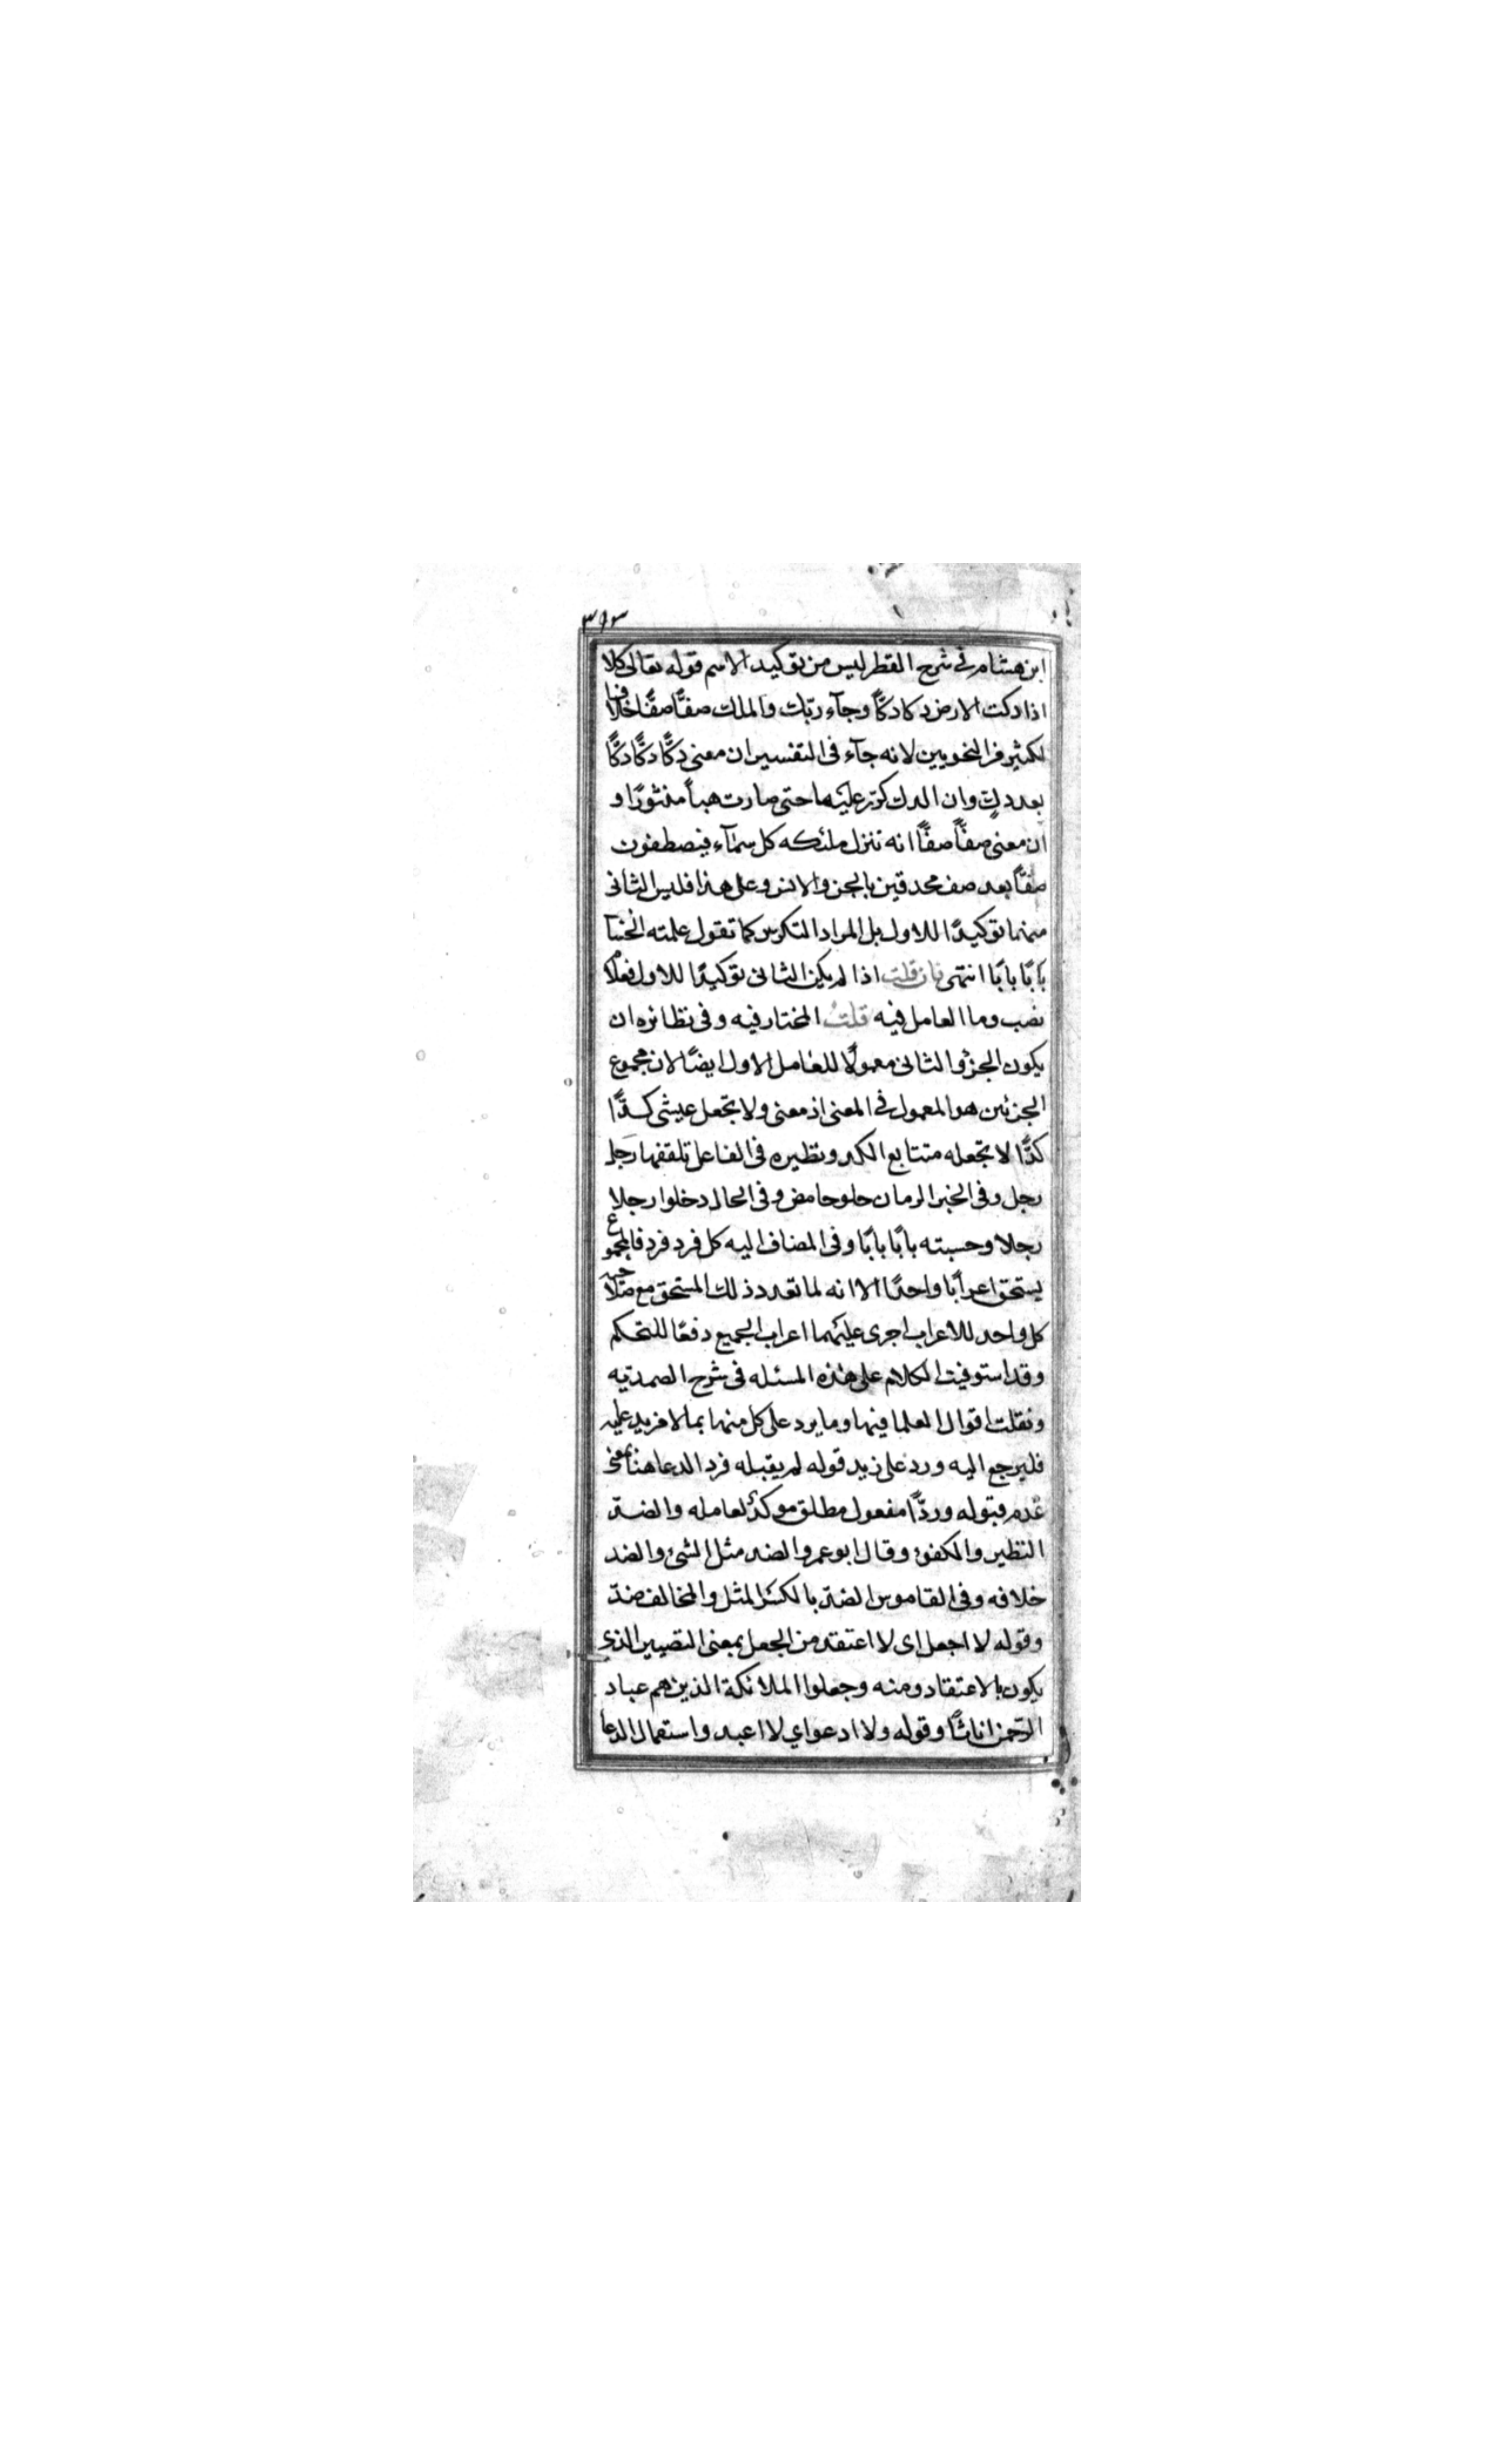 ٣٩٣
ابن هشام في شرح القطر ليس من توكيد الاسم قوله تعالى كلا
اذا دكت الارض دكا دكًّا وجآء ربّك والملك صفًّا صفًّا خلافا
لكثير من النحويين لانه جآء فى التفسير ان معنى دكًّا دكًّا دكًّا
بعد دكٍ وان الدك كرّر عليها حتى صارت هبأً منثورًا و
ان معنى صفًّا صفًّا انه تنزل ملئكه كل سمآء فيصطفون
صفًّا بعد صف محدقين بالجن والانس وعلى هذا فليس الثانى
منهما توكيدًا للاول بل المراد التكرير كما تقول علمته الحساب
بابًا بابًا انتهى فان قلت اذا لم يكن الثانى توكيدًا للاول فعلام
نصب وما العامل فيه قلت المختار فيه وفى نظائره ان
يكون الجزؤ الثانى معمولًا للعامل الاول ايضًا لان مجموع
الجزئين هو المعمول في المعنى اذ معنى ولا تجعل عيشى كدًّا
كدًّا لا تجعله متتابع الكد ونظيره فى الفاعل تلقفها رجل
رجل وفى الخبر الرمان حلو حامض وفى الحال دخلوا رجلا
رجلا وحسبته بابًا بابًا وفى المضاف اليه كل فرد فرد فالمجموع
يستحق اعرابًا واحدًا الا انه لما تعدد ذلك المستحق مع صلاحيه
كل واحد للاعراب اجرى عليهما اعراب الجميع دفعًا للتحكم
وقد استوفيت الكلام على هذه المسئله فى شرح الصمديّه
ونقلت اقوال العلما فيها وما يرد على كل منها بما لا مزيد عليه
فليرجع اليه ورد على زيد قوله لم يقبله فرد الدعا هنا بمعنى
عدم قبوله وردًّا مفعول مطلق موكد لعامله والضدّ
النظير والكفؤ وقال ابو عمرو الضد مثل الشئ والضد
خلافه وفى القاموس الضدّ بالكسر المثل والمخالف ضدّ
وقوله لا اجعل اى لا اعتقد من الجعل بمعنى التصيير الذي
يكون بالاعتقاد ومنه وجعلوا الملائكة الذين هم عباد
الرّحمن اناثًا وقوله ولا ادعو اي لا اعبد واستعمال الدعا